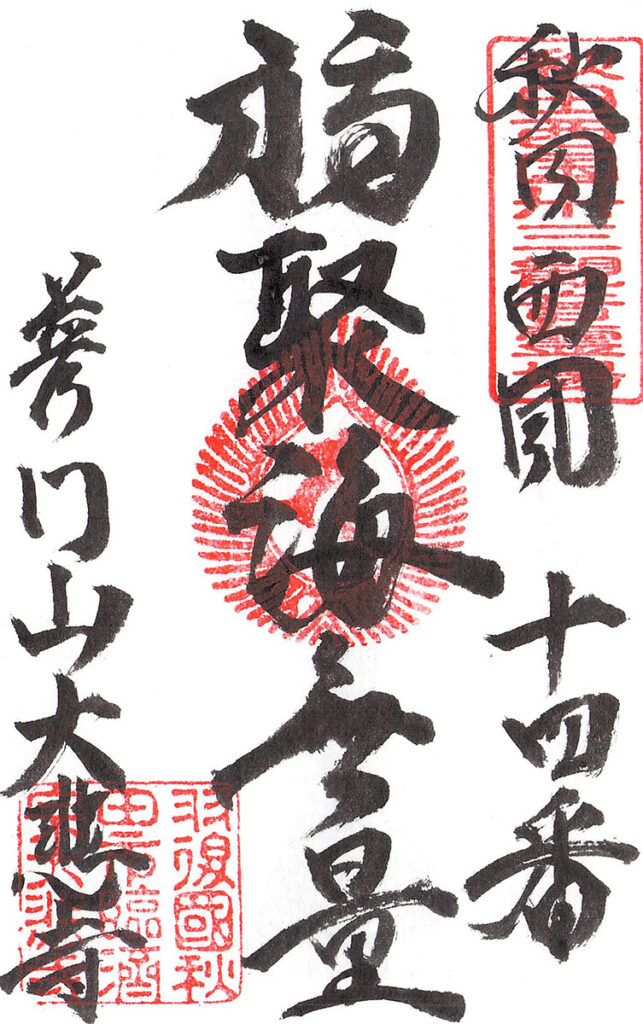 秋田西国 十四番
福聚海無量
門山大悲寺
羽後國秋